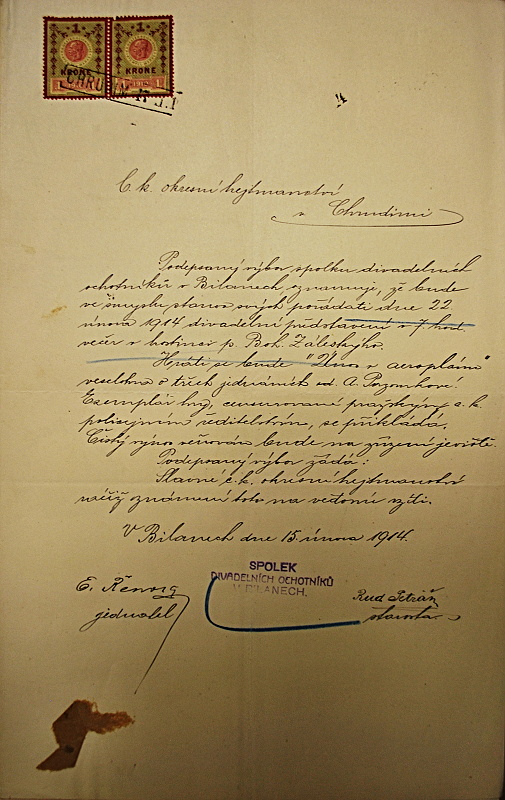 1 1
KRONE KRONE
CHRUDIM
C. k. okresní hejtmanství
v Chrudimi
Podepsaný výbor spolku divadelních
ochotníků v Bilanech oznamuje, že bude
ve smyslu stanov svých pořádati dne 22.
února 1914 divadelní představení v 7 hod.
večer v hostinci p. Boh. Záleského.
Hráti se bude "Únos v aeroplánu"
veselohra o třech jednáních od A.
Exemplář hry, censurované pražským c. k.
policejním ředitelstvím, se přikládá.
Čistý výnos věnován bude na zřízení jeviště.
Podepsaný výbor žádá:
Slavné c. k. okresní hejtmanství
račiž oznámení toto na vědomí vzíti.
V Bilanech dne 15. února 1914.
SPOLEK
DIVADELNÍCH OCHOTNÍKŮ
V BILANECH.
E. jednatel
Rud. Petráň
starosta